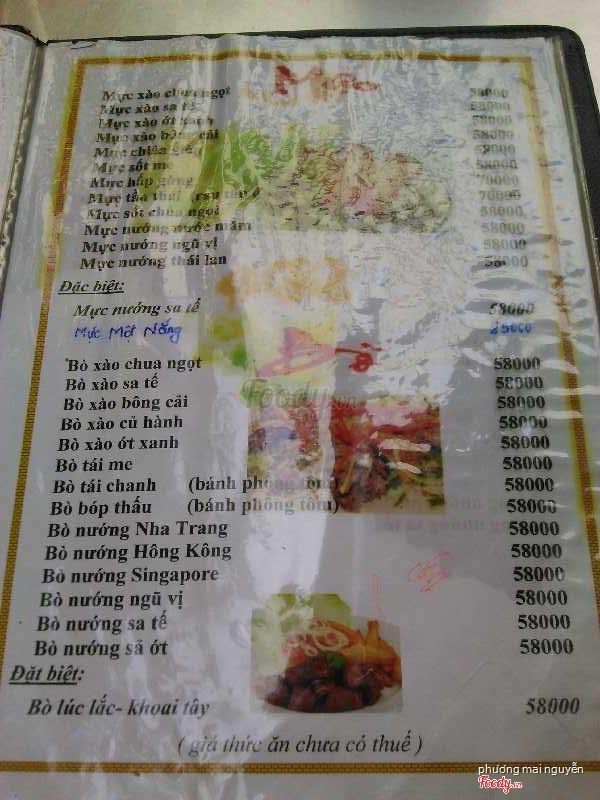 Mực
Mực xào chua ngọt 58000
Mực xào sa tế 58000
Mực xào ớt xanh 58000
Mực xào bông cải 58000
Mực chiên giòn 58000
Mực sốt me 58000
Mực hấp gừng 70000
Mực tần thái (rau tây 70000
Mực sốt chua ngọt 58000
Mực nướng nước mắm 58000
Mực nướng ngũ vị 58000
Mực nướng thái lan 58000
Đặc biệt:
Mực nướng sa tế 58000
Mực Một Nắng 85000
Bò
Bò xào chua ngọt 58000
Bò xào sa tế 58000
Foody.vn
Bò xào bông cải 58000
Bò xào củ hành 58000
Bò xào ớt xanh 58000
Bò tái me 58000
Bò tái chanh (bánh phông tôm) 58000
Bò bóp thấu (bánh phông tôm) 58000
Bò nướng Nha Trang 58000
Bò nướng Hông Kông 58000
Bò nướng Singapore 58000
Bò nướng ngũ vị 58000
Bò nướng sa tế 58000
Bò nướng sả ớt 58000
Đặt biệt:
Bò lúc lắc- khoai tây 58000
( giá thức ăn chưa có thuế )
phương mai nguyễn
Foody.vn